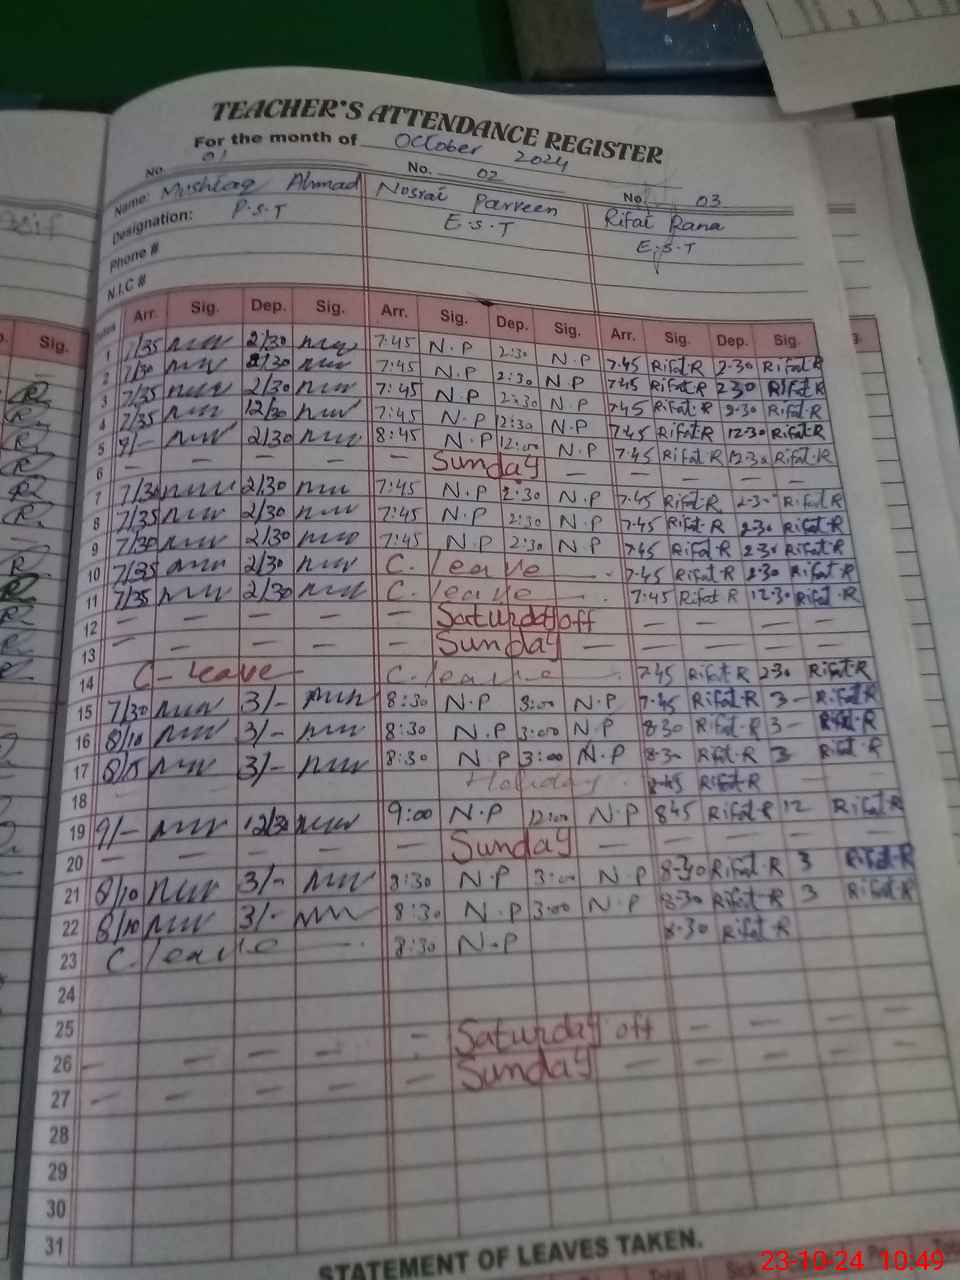 TEACHER'S ATTENDANCE REGISTER
For the month of October 2024
No. 01 No. 02 No. 03
Name: Mushtaq Ahmad Nosrat Parveen Rifat Rana
Designation: P.S.T E.S.T E.S.T
Phone #
N.I.C #
Arr. Sig. Dep. Sig. Arr. Sig. Dep. Sig. Arr. Sig. Dep. Sig.
1 7/35 2/30 7:45 N.P 2:30 N.P 7.45 Rifat R 2.30 Rifat.R
2 7/30 2/30 7:45 N.P 2:30 N.P 7.45 Rifat R 2.30 Rifat.R
3 7/35 2/30 7:45 N.P 2:30 N.P 7.45 Rifat.R 2.30 Rifat.R
4 7/35 12/30 7:45 N.P 12:30 N.P 7.45 Rifat R 12.30 Rifat.R
5 9/- 2/30 8:45 N.P 12:00 N.P 7.45 Rifat R 12.30 Rifat.R
6 — — — — — Sunday — — — — —
7 7/30 2/30 7:45 N.P 2:30 N.P 7.45 Rifat.R 2.30 Rifat.R
8 7/35 2/30 7:45 N.P 2:30 N.P 7.45 Rifat.R 2.30 Rifat.R
9 7/30 2/30 7:45 N.P 2:30 N.P 7.45 Rifat.R 2.30 Rifat.R
10 7/35 2/30 C. leave 7.45 Rifat.R 2.30 Rifat.R
11 7/35 2/30 C. leave 7:45 Rifat R 12.30 Rifat.R
12 — — — — — Saturday off — — — —
13 — — — — — Sunday — — — — —
14 C- leave C. leave 7.45 Rifat.R 2.30 Rifat.R
15 7/30 3/- 8:30 N.P 3:00 N.P 7.45 Rifat.R 3- Rifat.R
16 8/10 3/- 8:30 N.P 3:00 N.P 8.30 Rifat.R 3- Rifat.R
17 3/- 8:30 N.P 3:00 N.P 8.30 Rifat.R 3 Rifat.R
18 Holiday 8.45 Rifat.R
19 9/- 12/30 9:00 N.P 12:00 N.P 845 Rifat R 12 Rifat R
20 — — — — — Sunday — — — — —
21 8/10 3/- 8:30 N.P 3:00 N.P 8.30 Rifat.R 3 Rifat.R
22 8/10 3/- 8:30 N.P 3:00 N.P 8.30 Rifat.R 3 Rifat.R
23 C. leave 8:30 N.P 8.30 Rifat.R
24
25
26 — — — — — Saturday off — — — —
27 — — — — — Sunday — — — — —
28
29
30
31
STATEMENT OF LEAVES TAKEN.
23-10-24 10:49